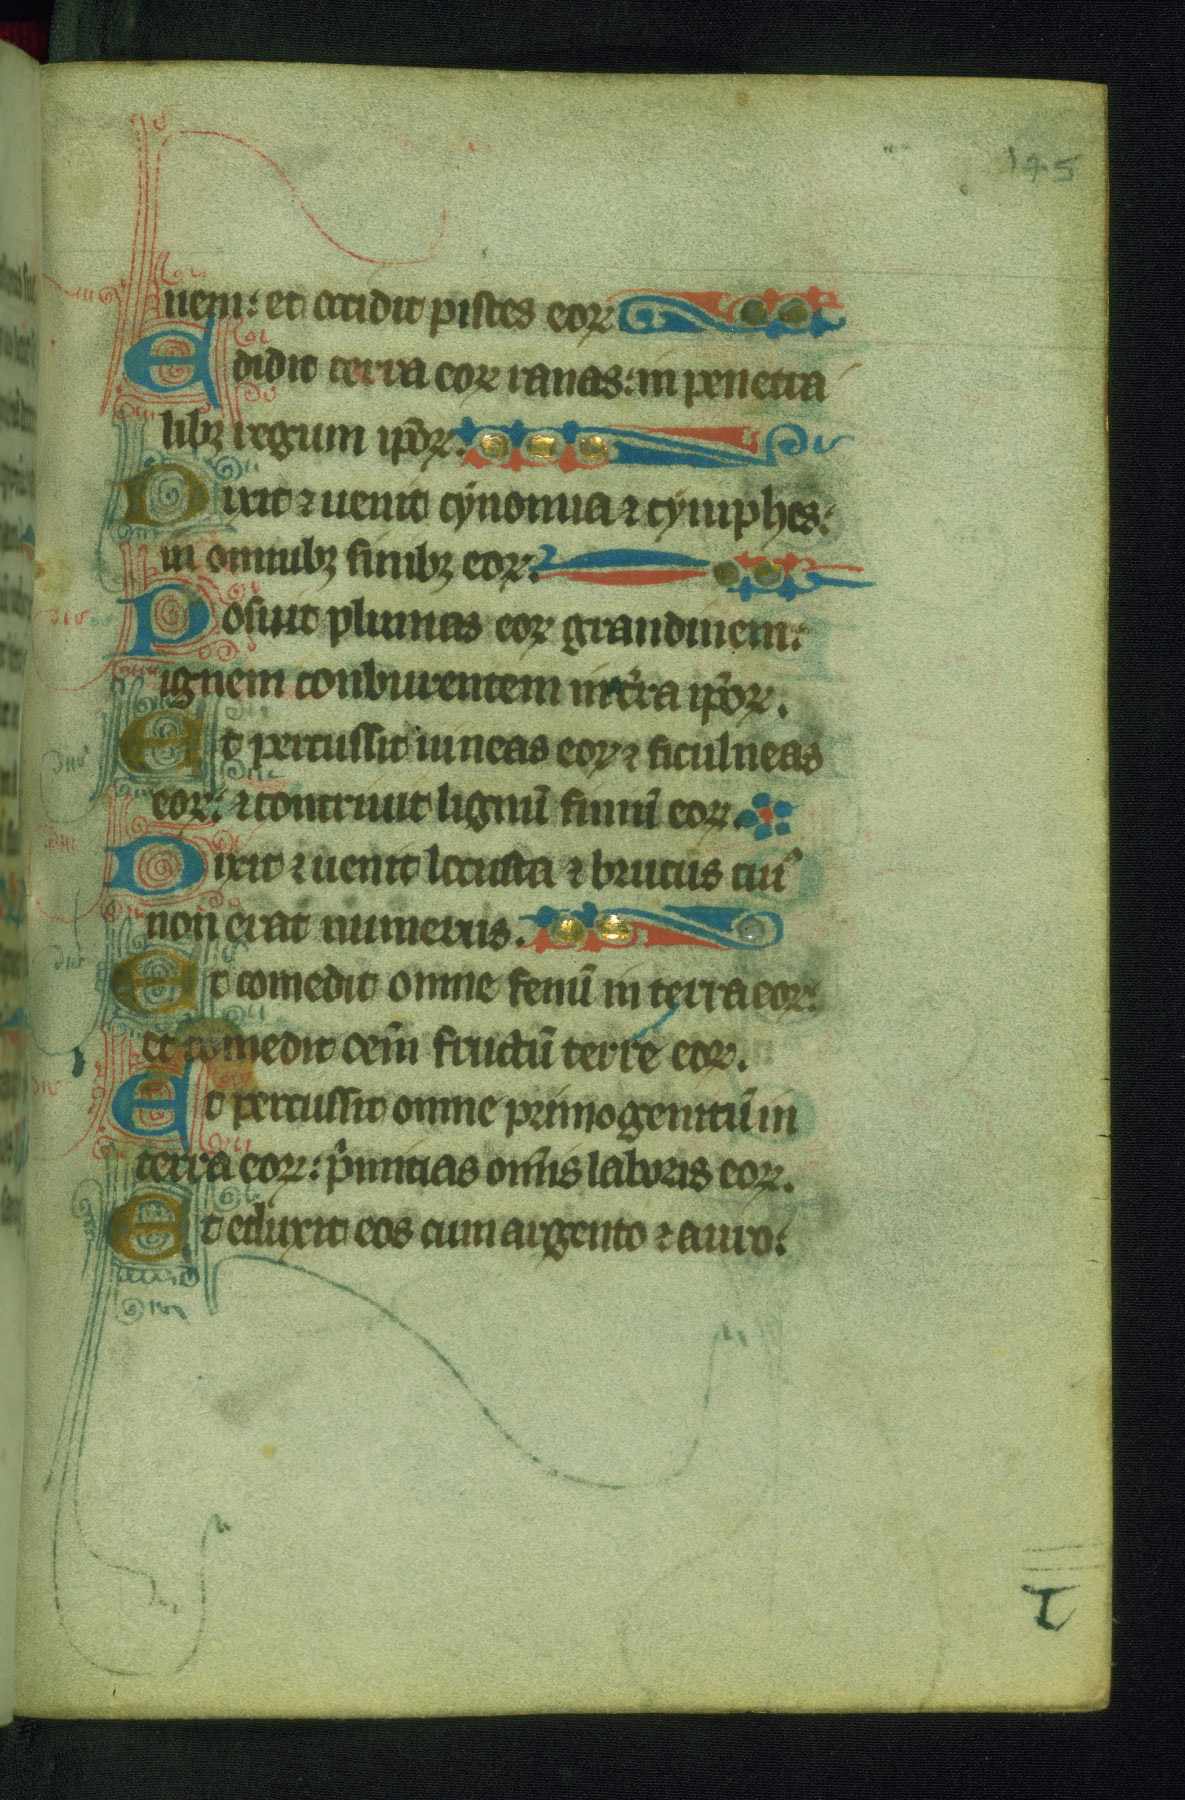 145
nem: et occidit pisces eoꝝ
Edidit terra eoꝝ ranas: in penetra
libꝫ regum ip̄oꝝ.
Dixit ⁊ uenit cynomia ⁊ cyniphes:
in omnibꝫ finibꝫ eoꝝ.
Posuit pluuias eoꝝ grandinem:
ignem conburentem in t̄ra ip̄oꝝ.
Et percussit uineas eoꝝ ⁊ ficulneas
eoꝝ: ⁊ contriuit lignū finiū eoꝝ.
Dixit ⁊ uenit locusta ⁊ brucus cuiꝰ
non erat numerus.
Et comedit omne fenū in terra eoꝝ:
et comedit oēm fructū terre eoꝝ.
Et percussit omne primogenitū in
terra eoꝝ: p̄mitias om̄is laboris eoꝝ.
Et eduxit eos cum argento ⁊ auro: